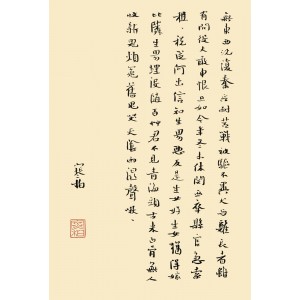 無東西況復秦兵耐苦戰被驅不異犬与雞長者雖
有問役夫敢申恨且如今年冬未休關西卒縣官急索
租〻税從何出信知生男惡反是生女好生女猶得嫁
比鄰生男埋沒隨百草君不見青海頭古來白骨無人
收新鬼煩冤舊鬼哭天陰雨濕聲啾〻